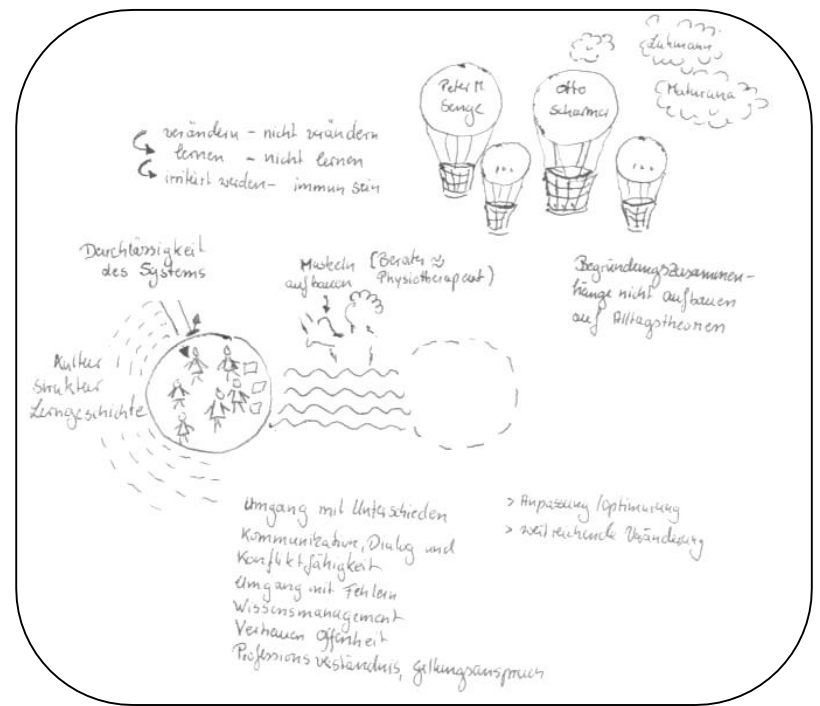 Luhmann
Maturana
Peter M.
Senge
Otto
Scharmer
...
...
verändern - nicht verändern
lernen - nicht lernen
irritiert werden - immun sein
Durchlässigkeit
des Systems
Muskeln (Berater ≈
aufbauen Physiotherapeut)
Begründungszusammen-
hänge nicht aufbauen
auf Alltagstheorien
Kultur
Struktur
Lerngeschichte
Umgang mit Unterschieden
Kommunikation, Dialog und
Konfliktfähigkeit
Umgang mit Fehlern
Wissensmanagement
Vertrauen Offenheit
Professionsverständnis, Geltungsanspruch
> Anpassung/Optimierung
> weitreichende Veränderung